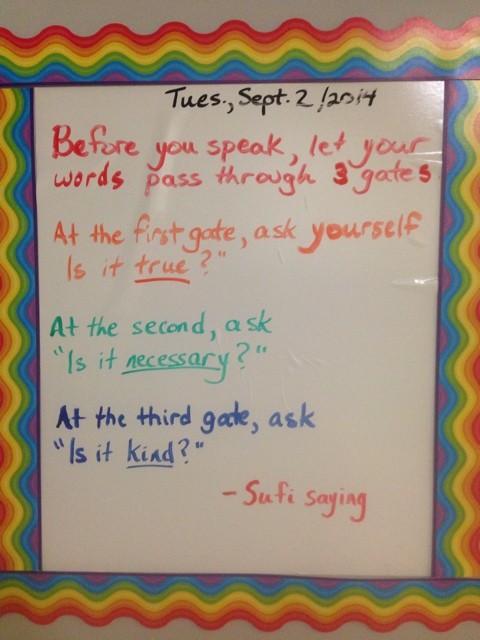 Tues., Sept. 2/2014
Before you speak, let your
words pass through 3 gates
At the first gate, ask yourself
Is it true?"
At the second, ask
"Is it necessary?"
At the third gate, ask
"Is it kind?"
- Sufi saying